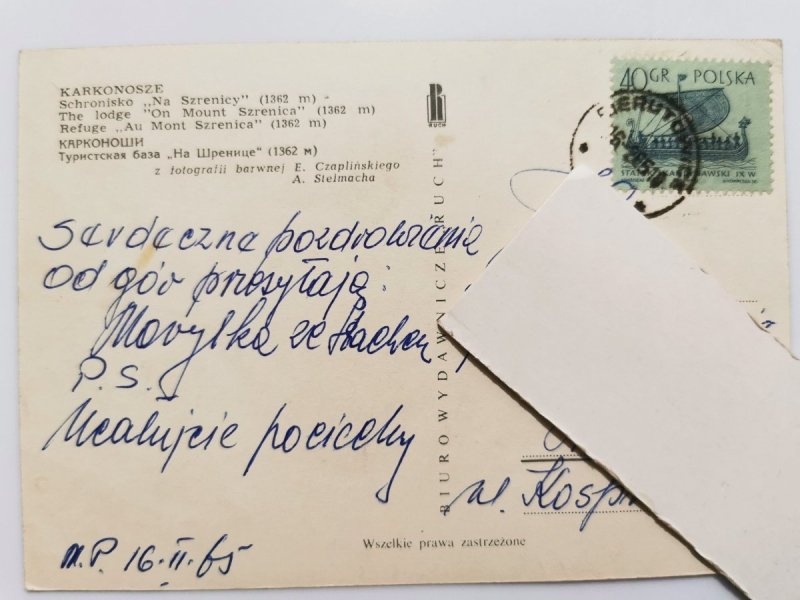 KARKONOSZE
Schronisko „Na Szrenicy" (1362 m)
The lodge "On Mount Szrenica" (1362 m)
Refuge „Au Mont Szrenica" (1362 m)
КАРКОНОШИ
Туристская база „На Шренице" (1362 м)
z fotografii barwnej E. Czaplińskiego
A. Stelmacha
RUCH
40 GR POLSKA
IX W
Serdeczne pozdrowienia
od gór przesyłają:
Marylka ze Stachem
P.S.
Ucałujcie pociechy
M.P. 16.II.65
BIURO WYDAWNICZE „RUCH"
ul.
Wszelkie prawa zastrzeżone